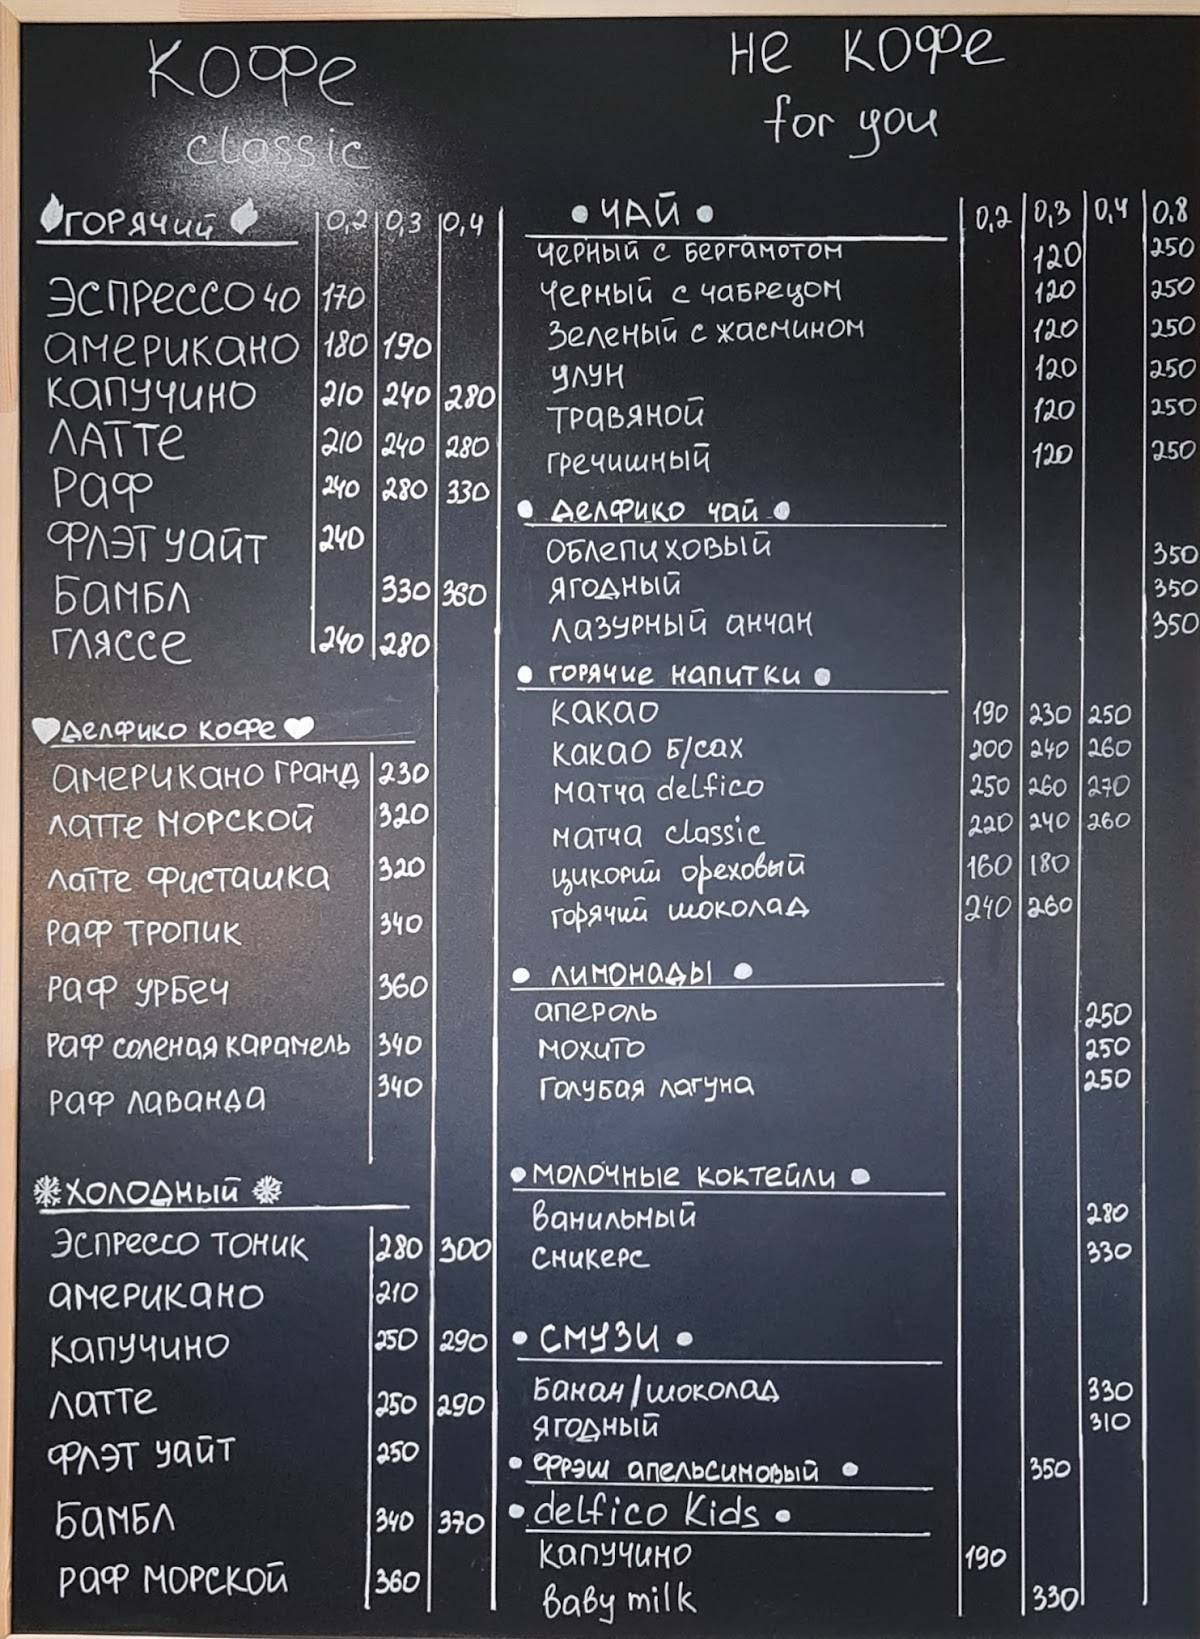 Кофе
classic
ГОРЯЧИЙ 0,2 0,3 0,4
ЭСПРЕССО 40 170
американо 180 190
капучино 210 240 280
ЛАТТЕ 210 240 280
Раф 240 280 330
ФЛЭТ УАЙТ 240
БАМБЛ 330 360
ГЛЯССЕ 240 280
Делфико кофе
американо ГРАНД 230
латте МОРСКОЙ 320
латте фисташка 320
Раф ТРОПИК 340
Раф УРБЕЧ 360
Раф соленая карамель 340
Раф лаванда 340
ХОЛОДНЫЙ
ЭСПРЕССО ТОНИК 280 300
американо 210
капучино 250 290
Латте 250 290
ФЛЭТ УАЙТ 250
БАМБЛ 340 370
РАФ МОРСКОЙ 360
не кофе
for you
ЧАЙ 0,2 0,3 0,4 0,8
черный с бергамотом 120 250
черный с чабрецом 120 250
Зеленый с жасмином 120 250
улун 120 250
травяной 120 250
гречишный 120 250
Делфико чай
облепиховый 350
ягодный 350
лазурный анчан 350
горячие напитки
какао 190 230 250
какао б/сах 200 240 260
матча delfico 250 260 270
матча classic 220 240 260
цикорий ореховый 160 180
горячий шоколад 240 260
лимонады
апероль 250
мохито 250
голубая лагуна 250
молочные коктейли
ванильный 280
сникерс 330
СМУЗИ
Банан/шоколад 330
ягодный 310
Фрэш апельсиновый 350
delfico Kids
капучино 190
baby milk 330